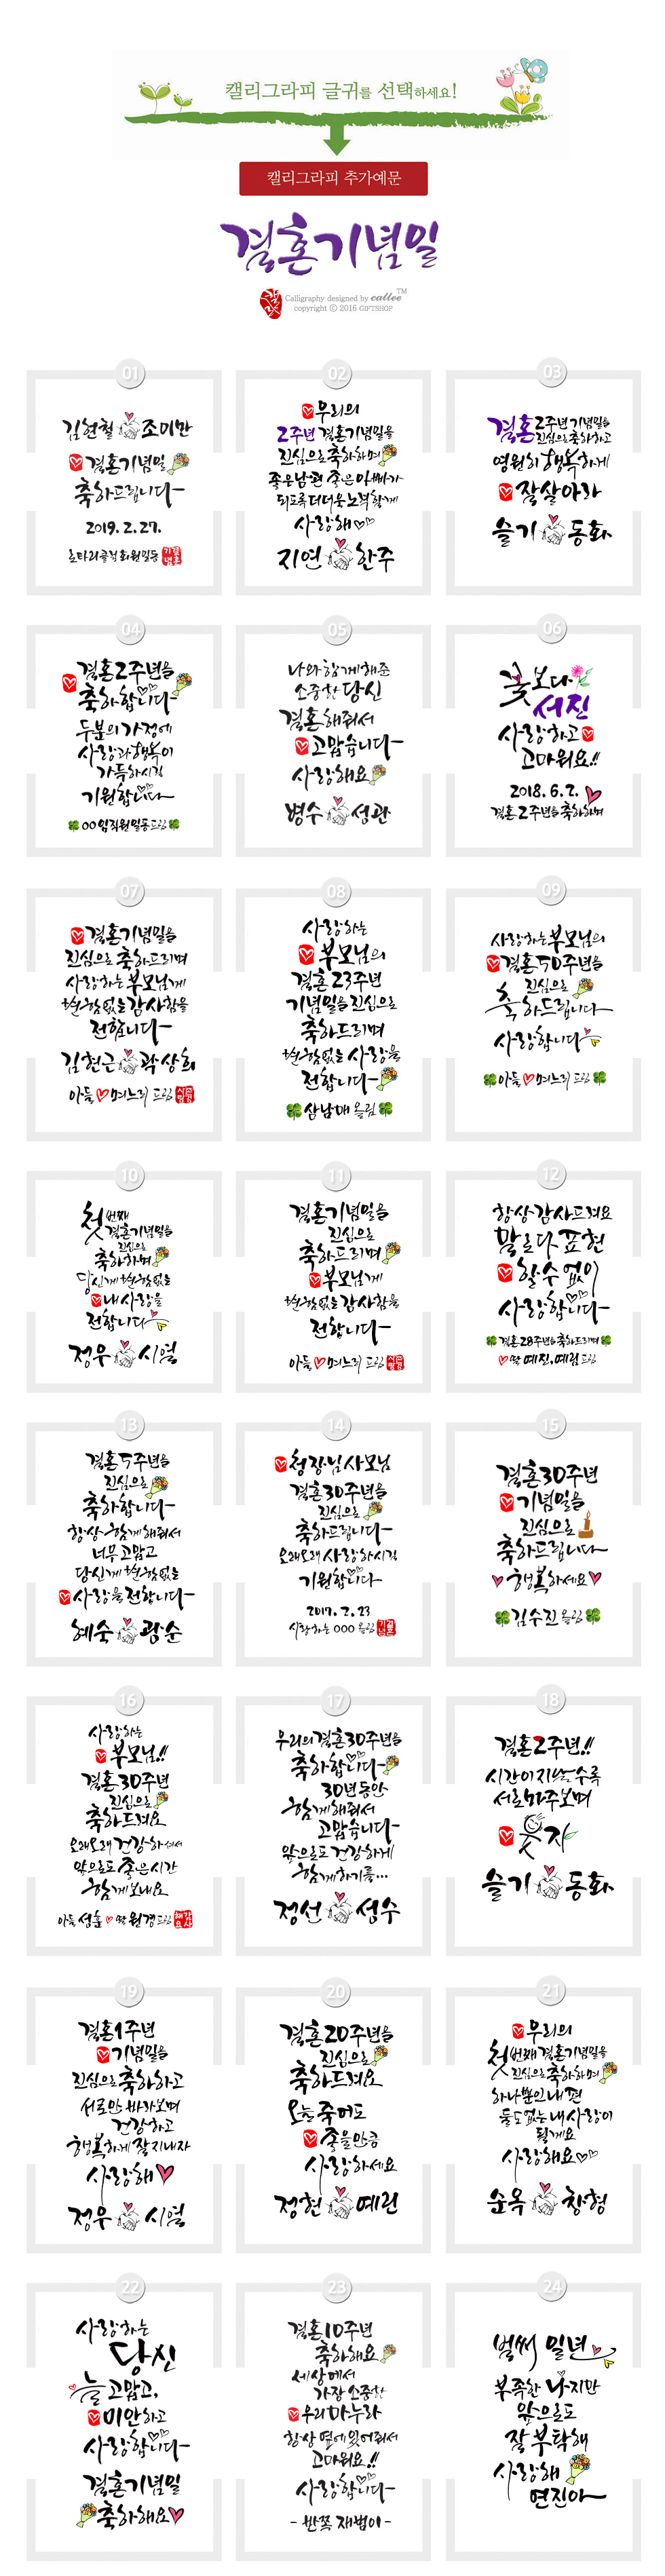 캘리그라피 글귀를 선택하세요!
캘리그라피 추가예문
결혼기념일
Calligraphy designed by callee TM
copyright ⓒ 2016 GIFTSHOP
01
김현철 조미란
결혼기념일
축하드립니다
2019. 2. 27.
회원일동
02
우리의
2주년 결혼기념일을
진심으로 축하하며
좋은남편 좋은아빠가
되도록 더더욱 노력할게
사랑해
지연 한주
03
결혼 2주년 기념일을
진심으로 축하하고
영원히 행복하게
잘살아라
슬기 동화
04
결혼2주년을
축하합니다
두분의 가정에
사랑과 행복이
가득하시길
기원합니다
OO임직원일동드림
05
나와 함께해준
소중한 당신
결혼해줘서
고맙습니다
사랑해요
병수 성관
06
꽃보다
서진
사랑하고
고마워요!!
2018. 6. 2.
결혼2주년을 축하하며
07
결혼기념일을
진심으로 축하드리며
사랑하는 부모님께
변함없는 감사함을
전합니다
김현근 곽상희
아들 며느리 드림
08
사랑하는
부모님의
결혼 23주년
기념일을 진심으로
축하드리며
변함없는 사랑을
전합니다
삼남매 올림
09
사랑하는 부모님의
결혼50주년을
진심으로
축하드립니다
사랑합니다
아들 며느리 드림
10
첫번째
결혼기념일을
진심으로
축하하며
당신께 변함없는
내사랑을
전합니다
정우 시열
11
결혼기념일을
진심으로
축하드리며
부모님께
변함없는 감사함을
전합니다
아들 며느리 드림
12
항상 감사드려요
말로다 표현
할수 없이
사랑합니다
결혼28주년을 축하드리며
딸 예진, 예림 드림
13
결혼5주년을
진심으로
축하합니다
항상 함께해줘서
너무 고맙고
당신께 변함없는
사랑을 전합니다
혜숙 광순
14
청장님 사모님
결혼30주년을
진심으로
축하드립니다
오래오래 사랑하시길
기원합니다
2017. 2. 23
사랑하는 OOO 올림
15
결혼30주년
기념일을
진심으로
축하드립니다
행복하세요
김수진 올림
16
사랑하는
부모님!!
결혼30주년
진심으로
축하드려요
오래오래 건강하셔서
앞으로도 좋은시간
함께보내요
아들 성훈 딸 원경 드림
17
우리의 결혼30주년을
축하합니다
30년동안
함께해줘서
고맙습니다
앞으로도 건강하게
함께하기를...
정선 성수
18
결혼2주년!!
시간이 지날수록
서로 마주보며
웃자
슬기 동화
19
결혼1주년
기념일을
진심으로 축하하고
서로만 바라보며
건강하고
행복하게 잘지내자
사랑해
정우 시열
20
결혼20주년을
진심으로
축하드려요
오늘 죽어도
좋을만큼
사랑하세요
정현 예린
21
우리의
첫번째 결혼기념일을
진심으로 축하하며
하나뿐인 내편
둘도없는 내사랑이
될게요
사랑해요
순옥 창형
22
사랑하는
당신
늘 고맙고,
미안하고
사랑합니다
결혼기념일
축하해요
23
결혼10주년
축하해요
세상에서
가장 소중한
우리마누라
항상 옆에있어줘서
고마워요!!
사랑합니다
- 반쪽 재범이 -
24
벌써 일년
부족한 나지만
앞으로도
잘 부탁해
사랑해
연진아